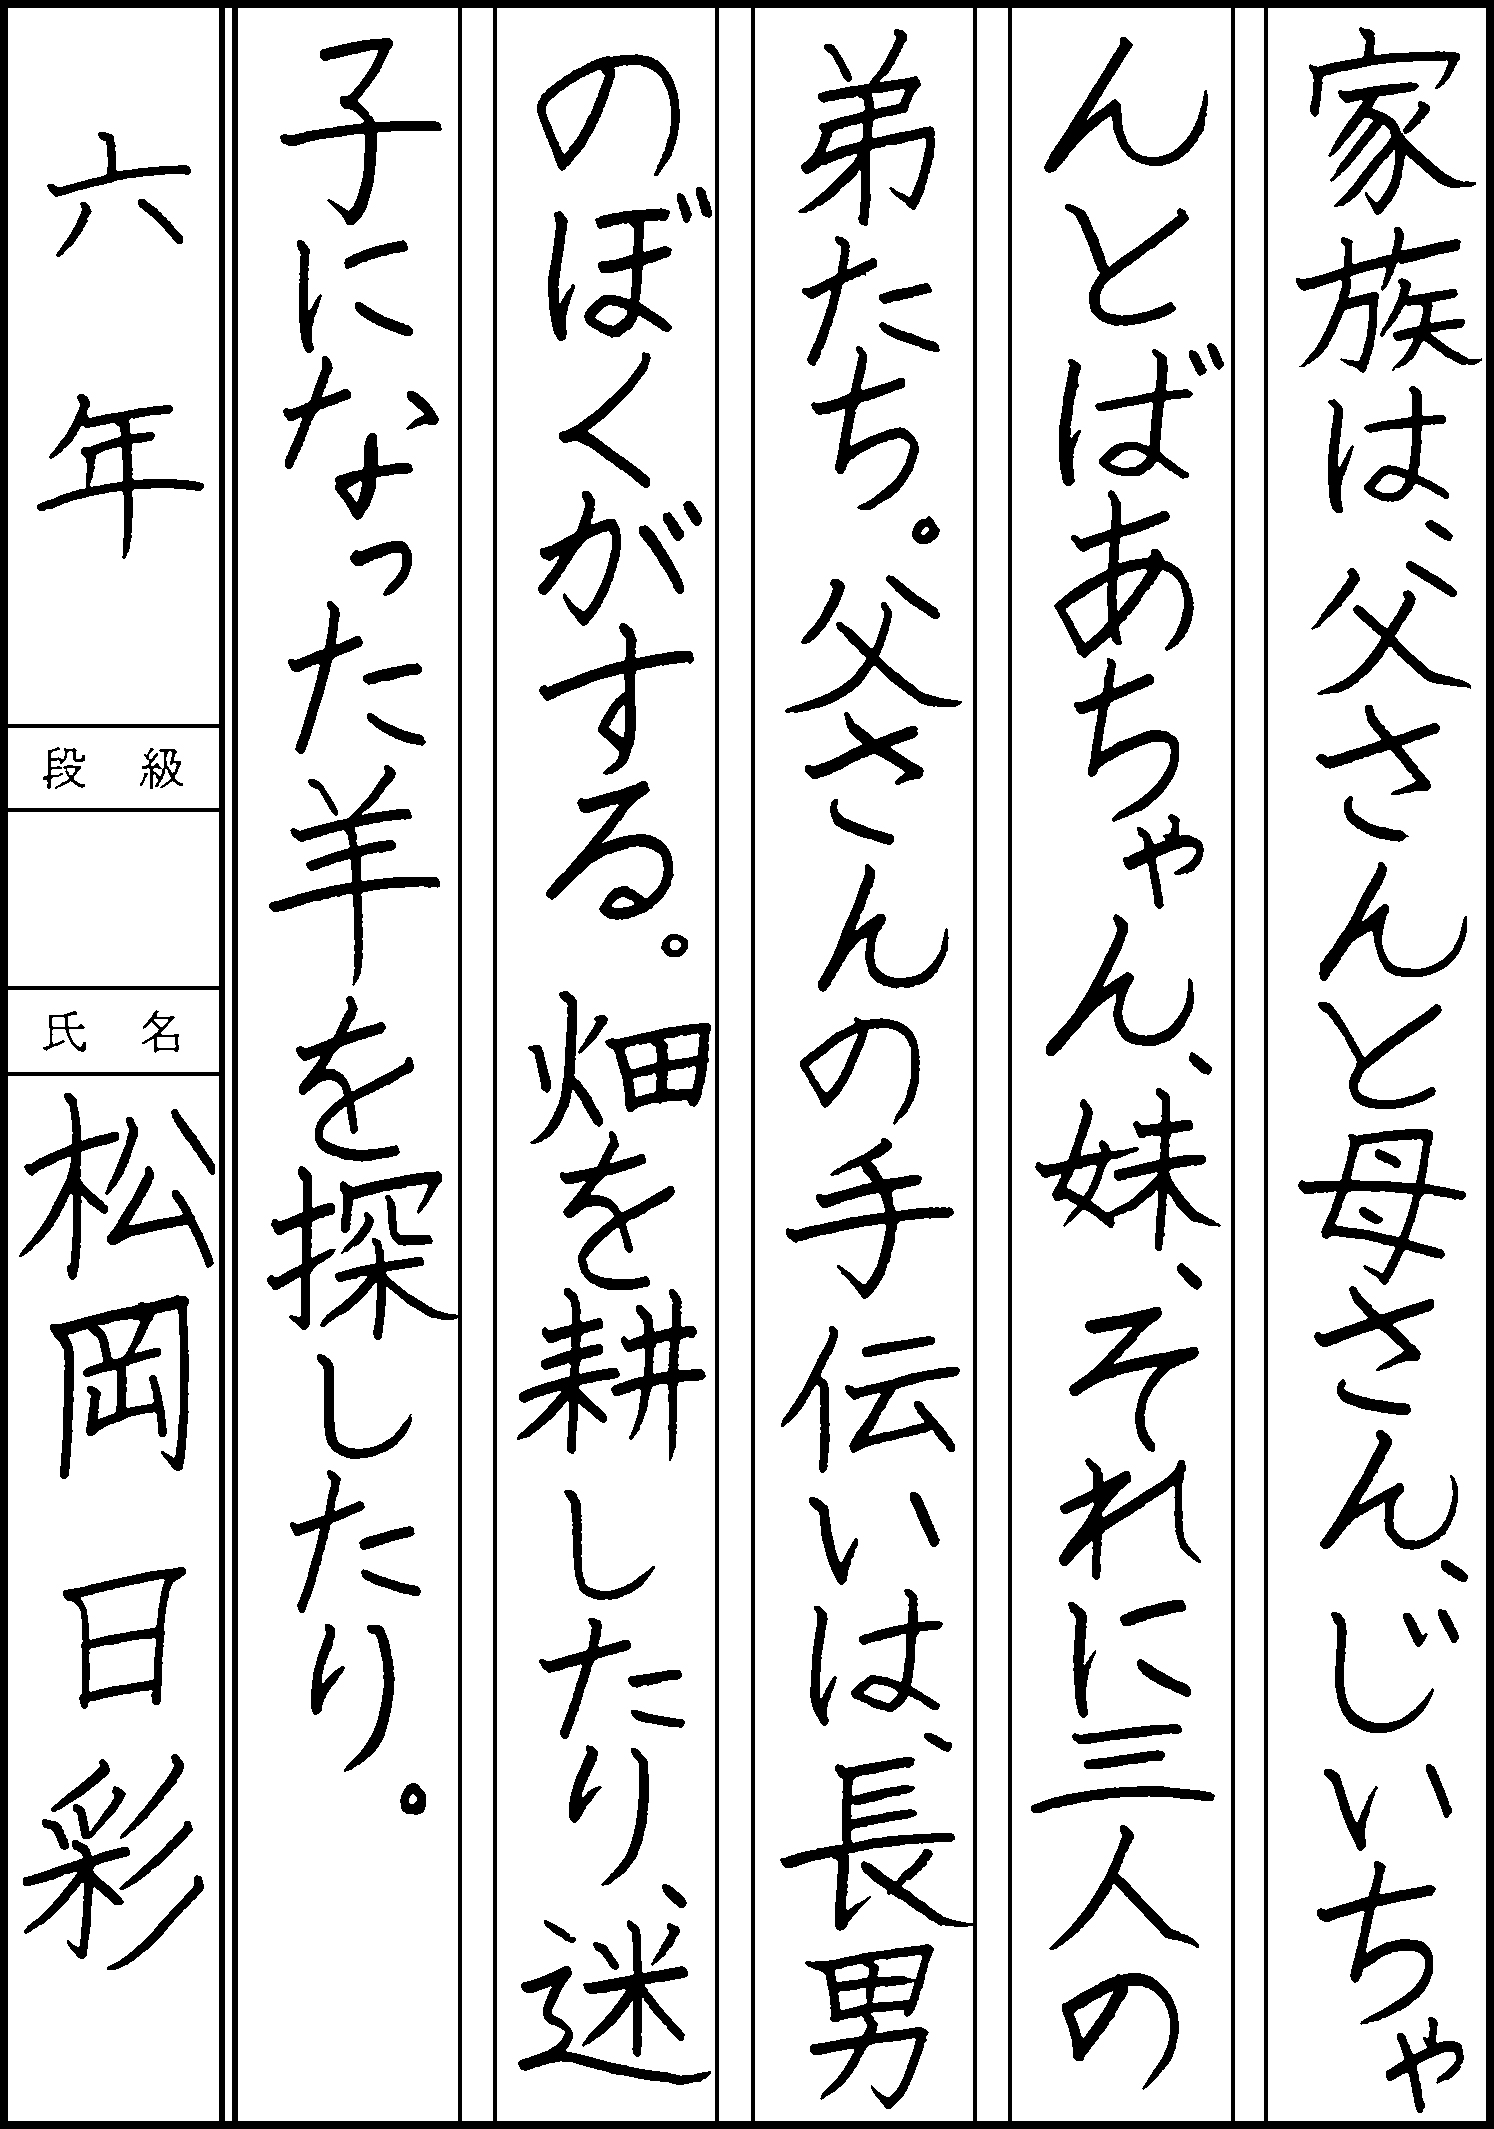 家族は、父さんと母さん、じいちゃ
んとばあちゃん、妹、それに三人の
弟たち。父さんの手伝いは、長男
のぼくがする。畑を耕したり、迷
子になった羊を探したり。
六年
段級
氏名
松岡日彩